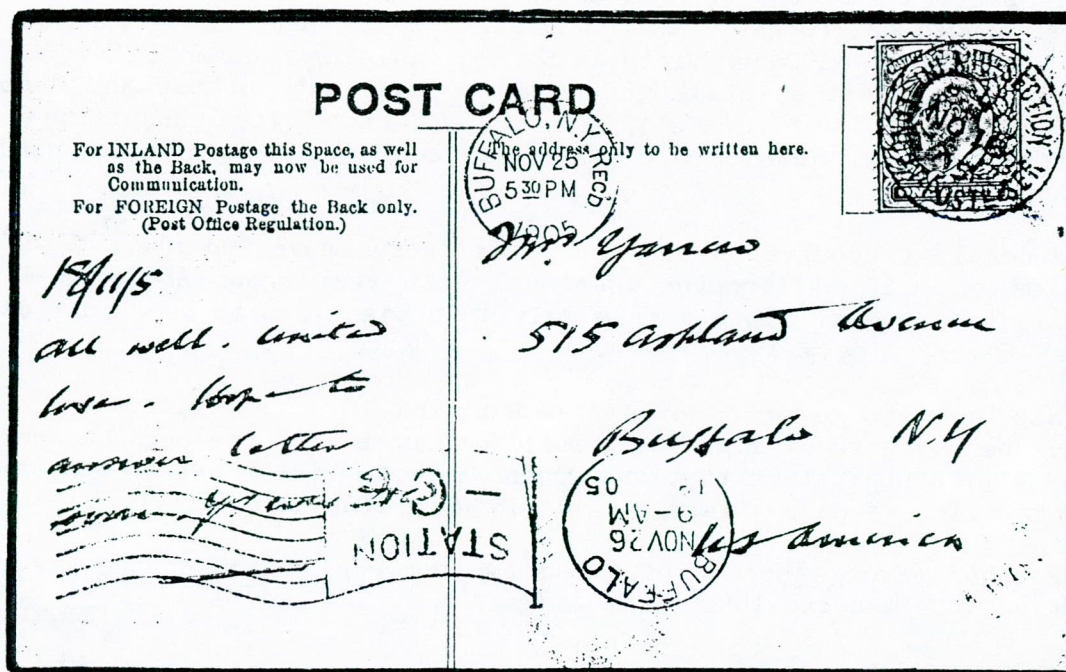 POST CARD
For INLAND Postage this Space, as well
as the Back, may now be used for
Communication.
For FOREIGN Postage the Back only.
(Post Office Regulation.)
The address only to be written here.
BUFFALO, N.Y. REC'D
NOV 25
5 30 PM
1905
18/11/5
all well. United
love. Hope to
answer letter
515 Ashland Avenue
Buffalo N.Y
America
STATION
BUFFALO
NOV 26
9-AM
05